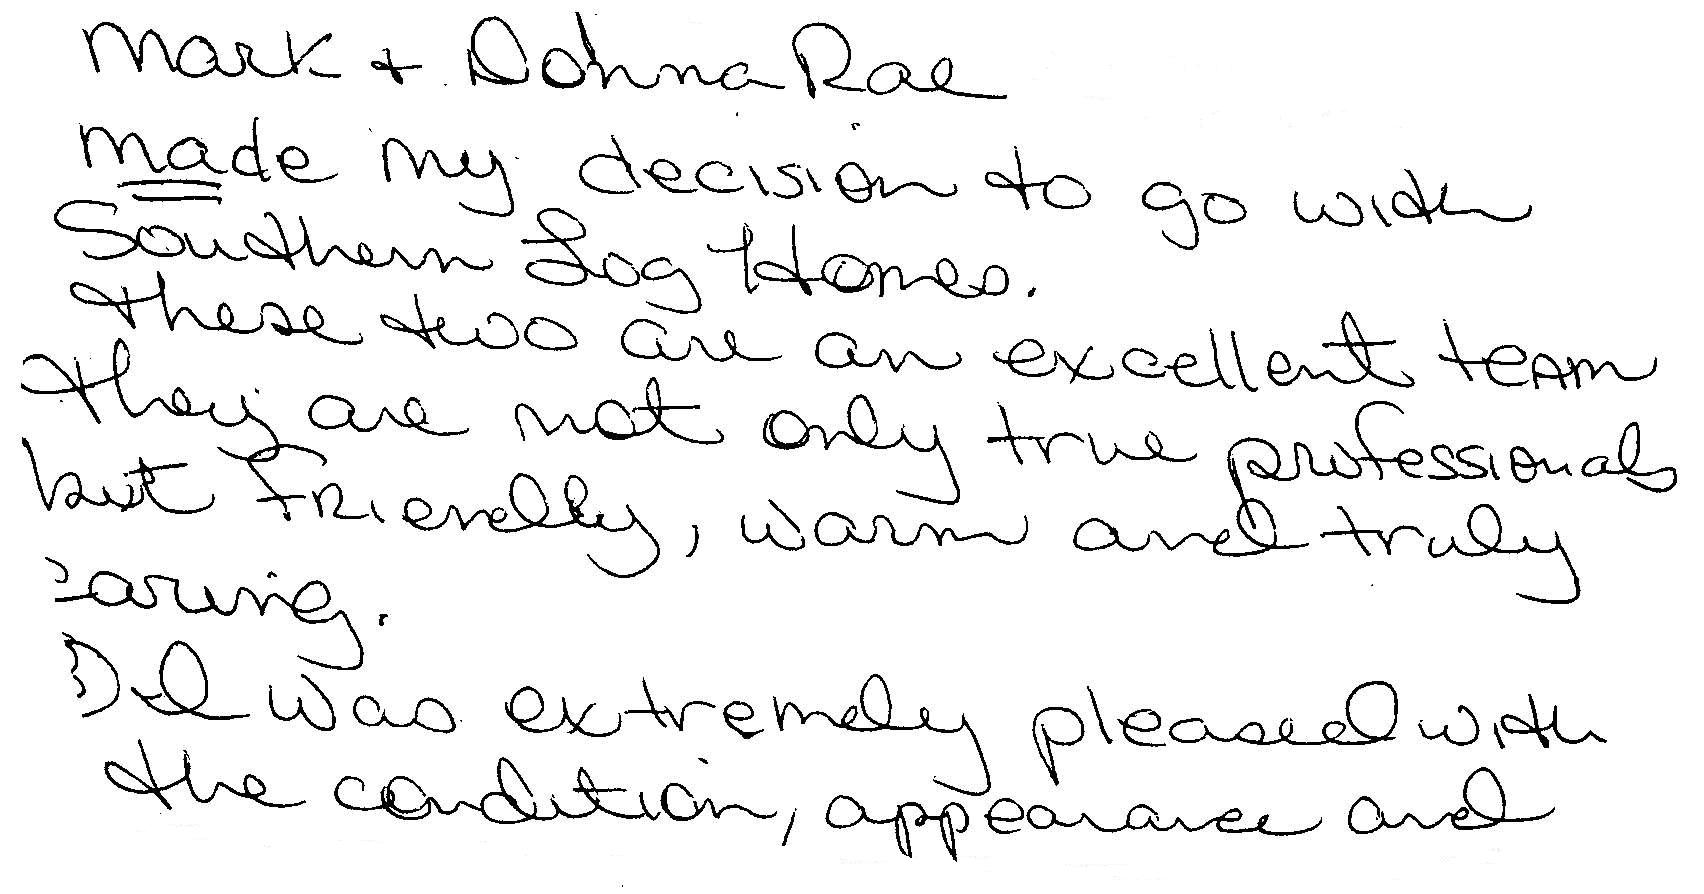 Mark + Donna Rae
made my decision to go with
Southern Log Homes.
these two are an excellent team
they are not only true professionals
but Friendly, warm and truly
caring.
Del was extremely pleased with
the condition, appearance and